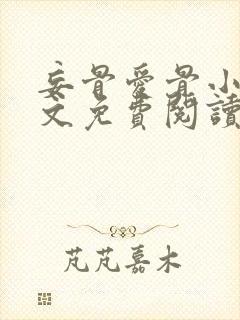 妄骨愛骨小
文免費閱讀
芃芃嘉木